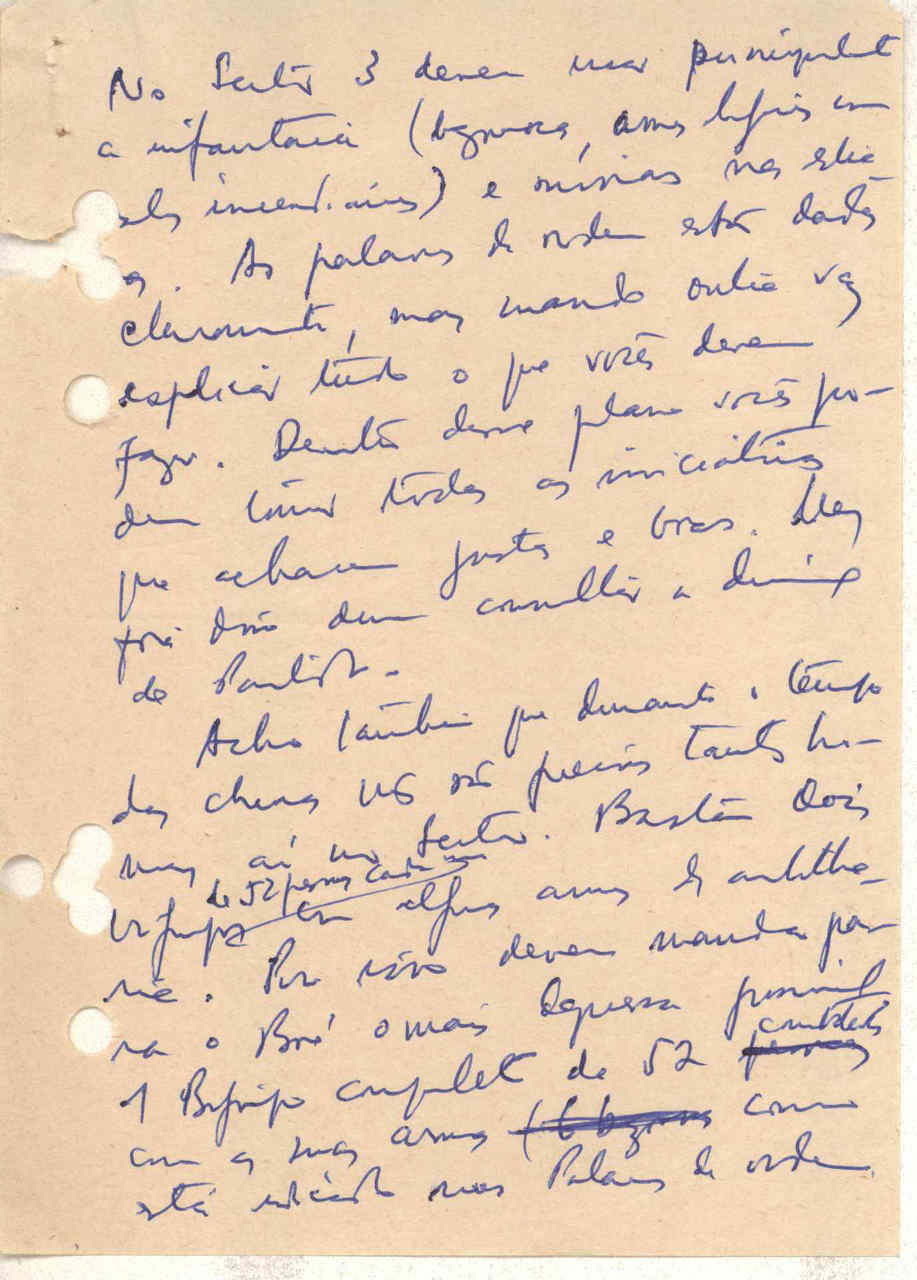 No Sector 3 devem usar principalmt
a infantaria (bazuca, armas ligeiras com
balas incendiárias) e minas nas estra-
das. As palavras de ordem estão dadas
claramente, mas mando outra vez
explicar tudo o que vocês devem
fazer. Dentro desse plano vocês po-
dem tomar todas as iniciativas
que acharem justas e boas. Mas
fora disso devem consultar a direcção
do Partido.
Acho também que durante o tempo
das chuvas não são precisos tantos ho-
mens aí no Sector. Bastam dois
de 52 pessoas cada um
bigrupos com algumas armas de artilha-
ria. Por isso devem mandar pa-
ra o Boé o mais depressa possível
combatentes
1 Bigrupo completo de 52 pessoas
com as suas armas (6 bazucas como
está indicado nas Palavras de ordem.